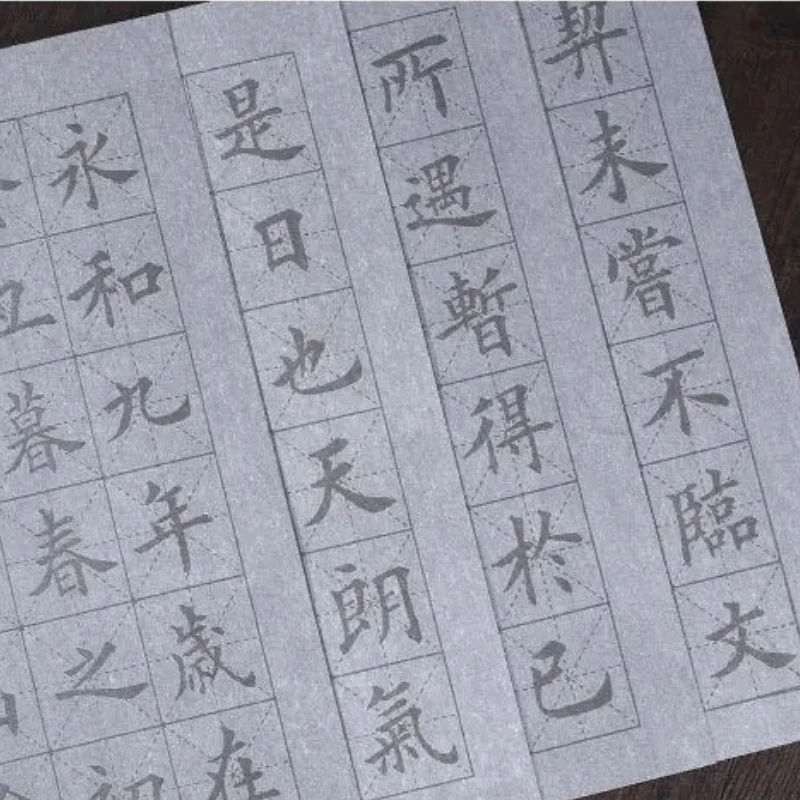 契未嘗不臨文
所遇暫得於已
是日也天朗氣
永和九年歲在
丑暮春之初